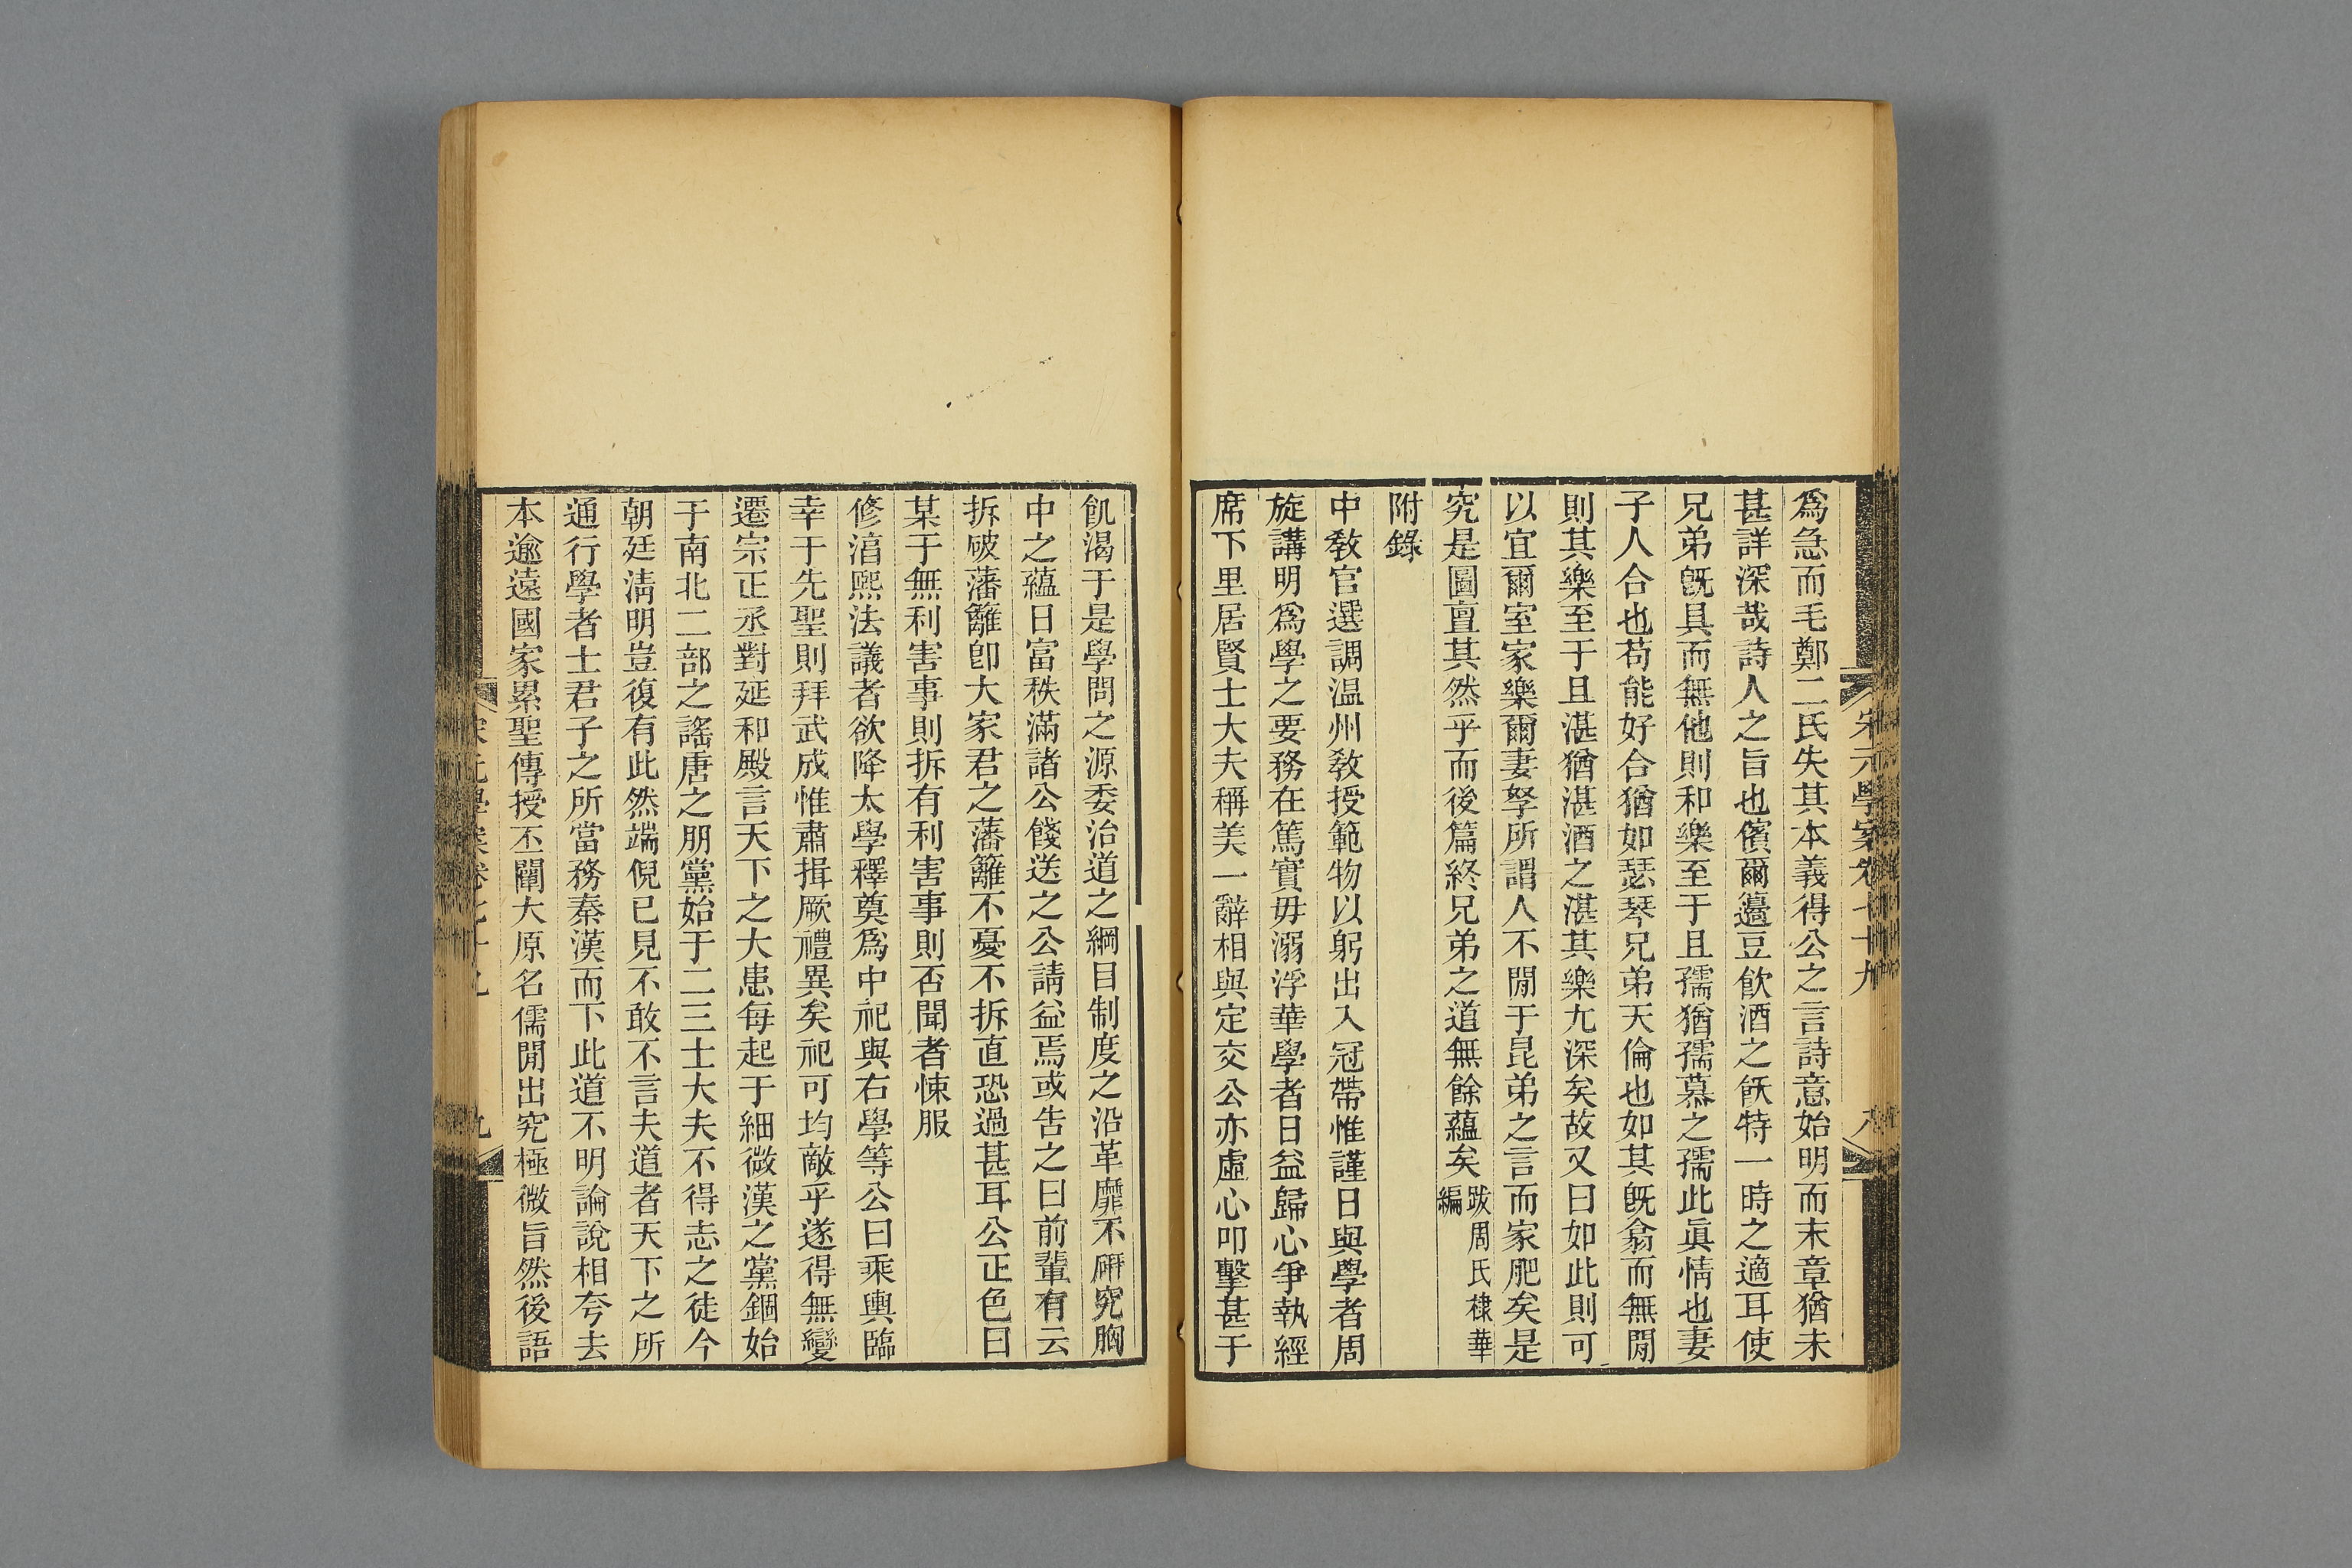 宋元學案卷七十九
八
爲急而毛鄭二氏失其本義得公之言詩意始明而末章猶未
甚詳深哉詩人之旨也儐爾籩豆飮酒之飫特一時之適耳使
兄弟旣具而無他則和樂至于且孺猶孺慕之孺此眞情也妻
子人合也苟能好合猶如瑟琴兄弟天倫也如其旣翕而無閒
則其樂至于且湛猶湛酒之湛其樂尤深矣故又曰如此則可
以宜爾室家樂爾妻孥所謂人不閒于昆弟之言而家肥矣是
究是圖亶其然乎而後篇終兄弟之道無餘蘊矣跋周氏棣華編
附錄
中敎官選調温州敎授範物以躬出入冠帶惟謹日與學者周
旋講明爲學之要務在篤實毋溺浮華學者日益歸心爭執經
席下里居賢士大夫稱美一辭相與定交公亦虛心叩擊甚于
飢渴于是學問之源委治道之綱目制度之沿革靡不硏究胸
中之蘊日富秩滿諸公餞送之公請益焉或告之曰前輩有云
拆破藩籬卽大家君之藩籬不憂不拆直恐過甚耳公正色曰
某于無利害事則拆有利害事則否聞者悚服
修湻熙法議者欲降太學釋奠爲中祀與右學等公曰乘輿臨
幸于先聖則拜武成惟肅揖厥禮異矣祀可均敵乎遂得無變
遷宗正丞對延和殿言天下之大患每起于細微漢之黨錮始
于南北二部之謠唐之朋黨始于二三士大夫不得志之徒今
朝廷淸明豈復有此然端倪已見不敢不言夫道者天下之所
通行學者士君子之所當務秦漢而下此道不明論說相夸去
本逾遠國家累聖傳授丕闡大原名儒閒出究極微旨然後語
宋元學案卷七十九
九